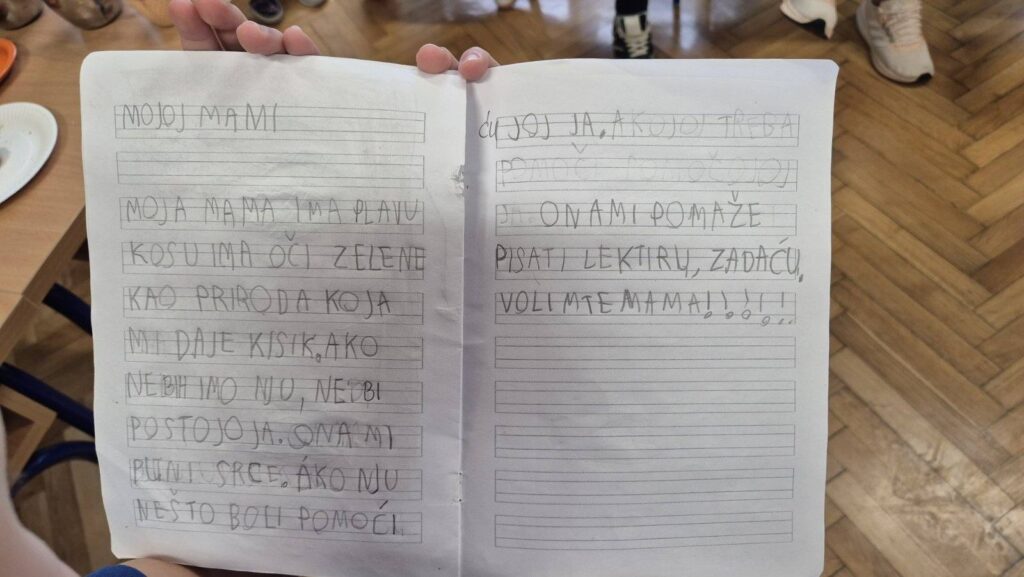 MOJOJ MAMI
MOJA MAMA IMA PLAVU
KOSU IMA OČI ZELENE
KAO PRIRODA KOJA
MI DAJE KISIK. AKO
NEBIH IMO NJU, NEBI
POSTOJO JA. ONA MI
PUNI SRCE. AKO NJU
NEŠTO BOLI POMOĆI
ću JOJ JA. AKOJOJ TREBA
POMOČ POMOČOJOJ
JA. ONAMI POMAŽE
PISATI LEKTIRU, ZADAĆU.
VOLIMTE MAMA!!!!!